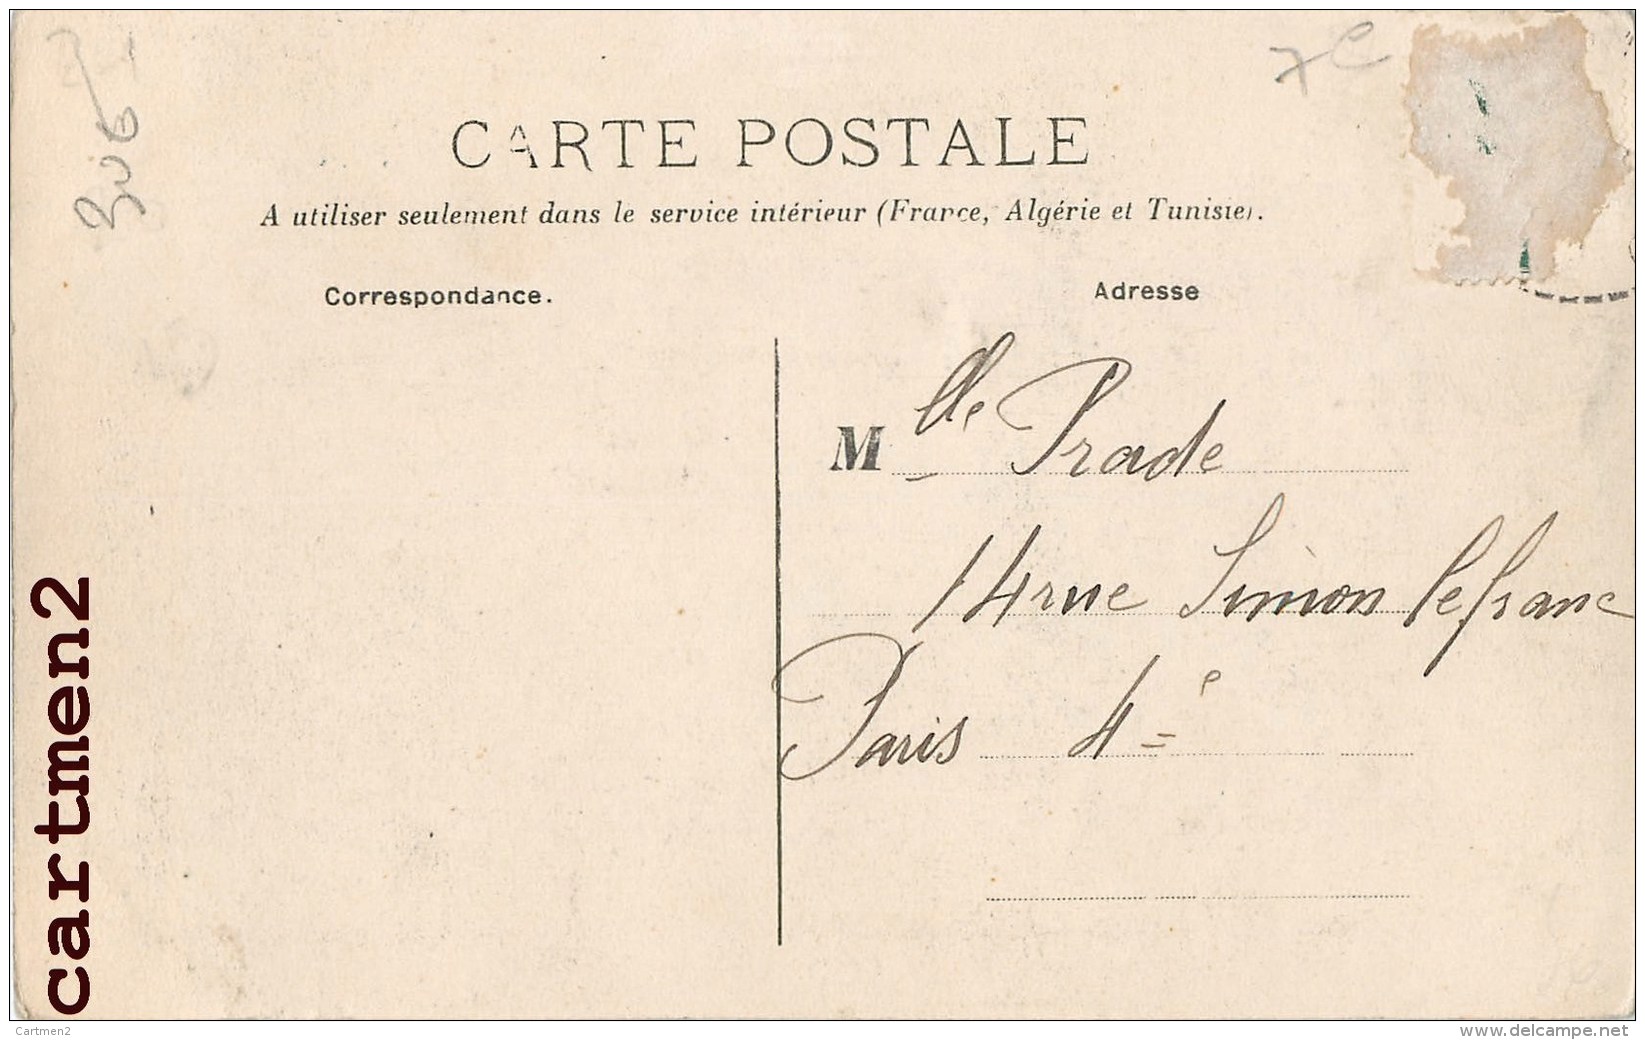 7€
306
CARTE POSTALE
A utiliser seulement dans le service intérieur (France, Algérie et Tunisie).
Correspondance.
Adresse
Mlle Prade
14 rue Simon lefranc
Paris 4e
cartmen2
Cartmen2
delcampe.net